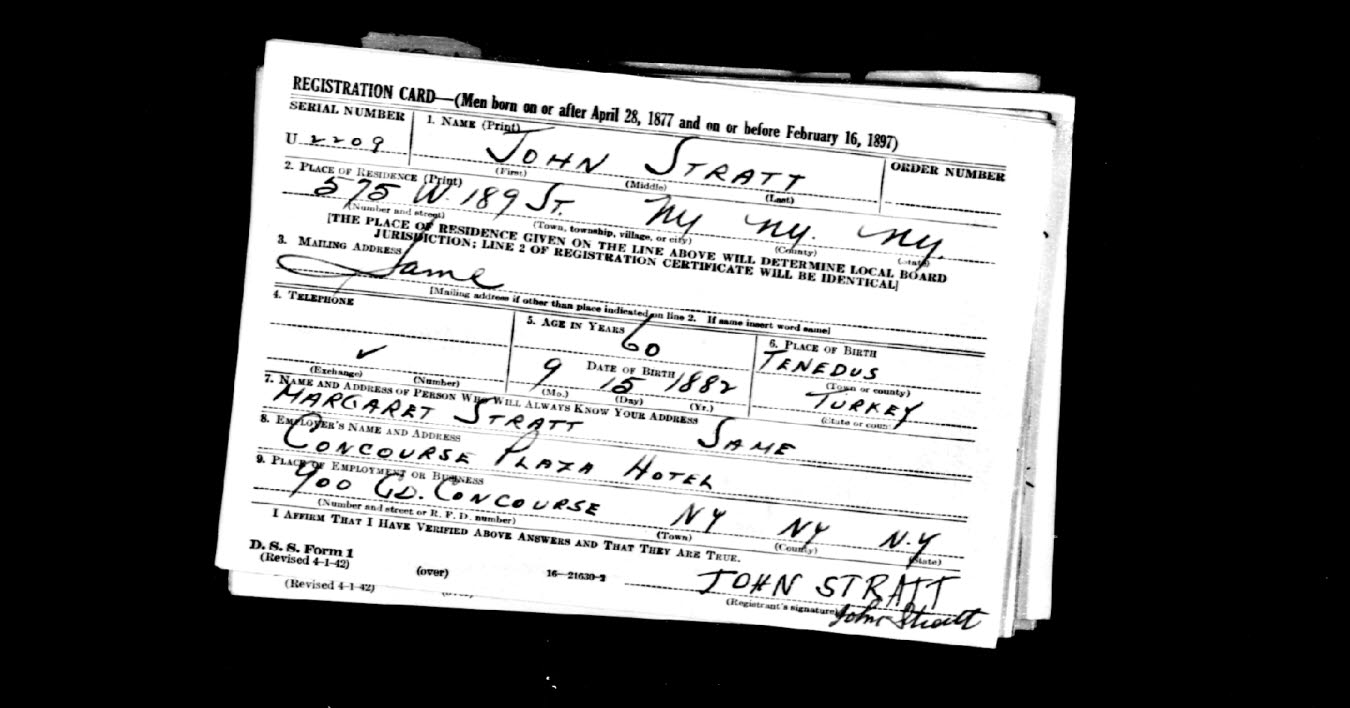 REGISTRATION CARD—(Men born on or after April 28, 1877 and on or before February 16, 1897)
SERIAL NUMBER 1. NAME (Print) ORDER NUMBER
U 2209 JOHN STRATT
(First) (Middle) (Last)
2. PLACE OF RESIDENCE (Print)
575 W. 189 ST. NY NY. NY.
(Number and street) (Town, township, village, or city) (County) (State)
[THE PLACE OF RESIDENCE GIVEN ON THE LINE ABOVE WILL DETERMINE LOCAL BOARD
JURISDICTION; LINE 2 OF REGISTRATION CERTIFICATE WILL BE IDENTICAL]
3. MAILING ADDRESS
Same
[Mailing address if other than place indicated on line 2. If same insert word same]
4. TELEPHONE 5. AGE IN YEARS 6. PLACE OF BIRTH
60 TENEDUS
DATE OF BIRTH (Town or county)
✓ 9 15 1882 TURKEY
(Exchange) (Number) (Mo.) (Day) (Yr.) (State or
7. NAME AND ADDRESS OF PERSON WHO WILL ALWAYS KNOW YOUR ADDRESS
MARGARET STRATT SAME
8. EMPLOYER'S NAME AND ADDRESS
CONCOURSE PLAZA HOTEL
9. PLACE OF EMPLOYMENT OR BUSINESS
900 GD. CONCOURSE NY NY N.Y
(Number and street or R. F. D. number) (Town) (County) (State)
I AFFIRM THAT I HAVE VERIFIED ABOVE ANSWERS AND THAT THEY ARE TRUE.
D. S. S. Form 1
(Revised 4-1-42) (over) 16—21630-2 JOHN STRATT
(Registrant's signature) John Stratt
(Revised 4-1-42)